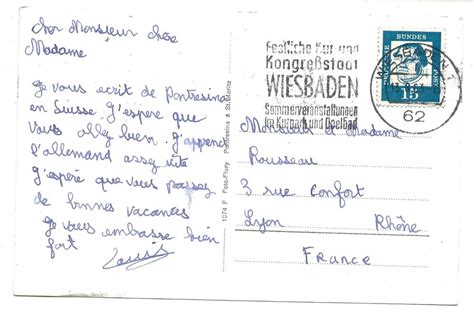 cher Monsieur chère
Madame
Je vous ecrit de Pontresina
en Suisse. J'espère que
vous allez bien. J'apprend
l'allemand assez vite
j'espère que vous passez
de bonnes vacances
Je vous embrasse bien
fort
1074 F Foto-Flury Pontresina & St. Moritz
Festliche Kur- und
Kongreßstadt
WIESBADEN
Sommerveranstaltungen
im Kurpark und Opelbad
WIESBADEN 1
62
DEUTSCHE BUNDESPOST
15
Monsieur et Madame
Rousseau
3 rue Confort
Lyon Rhône
France